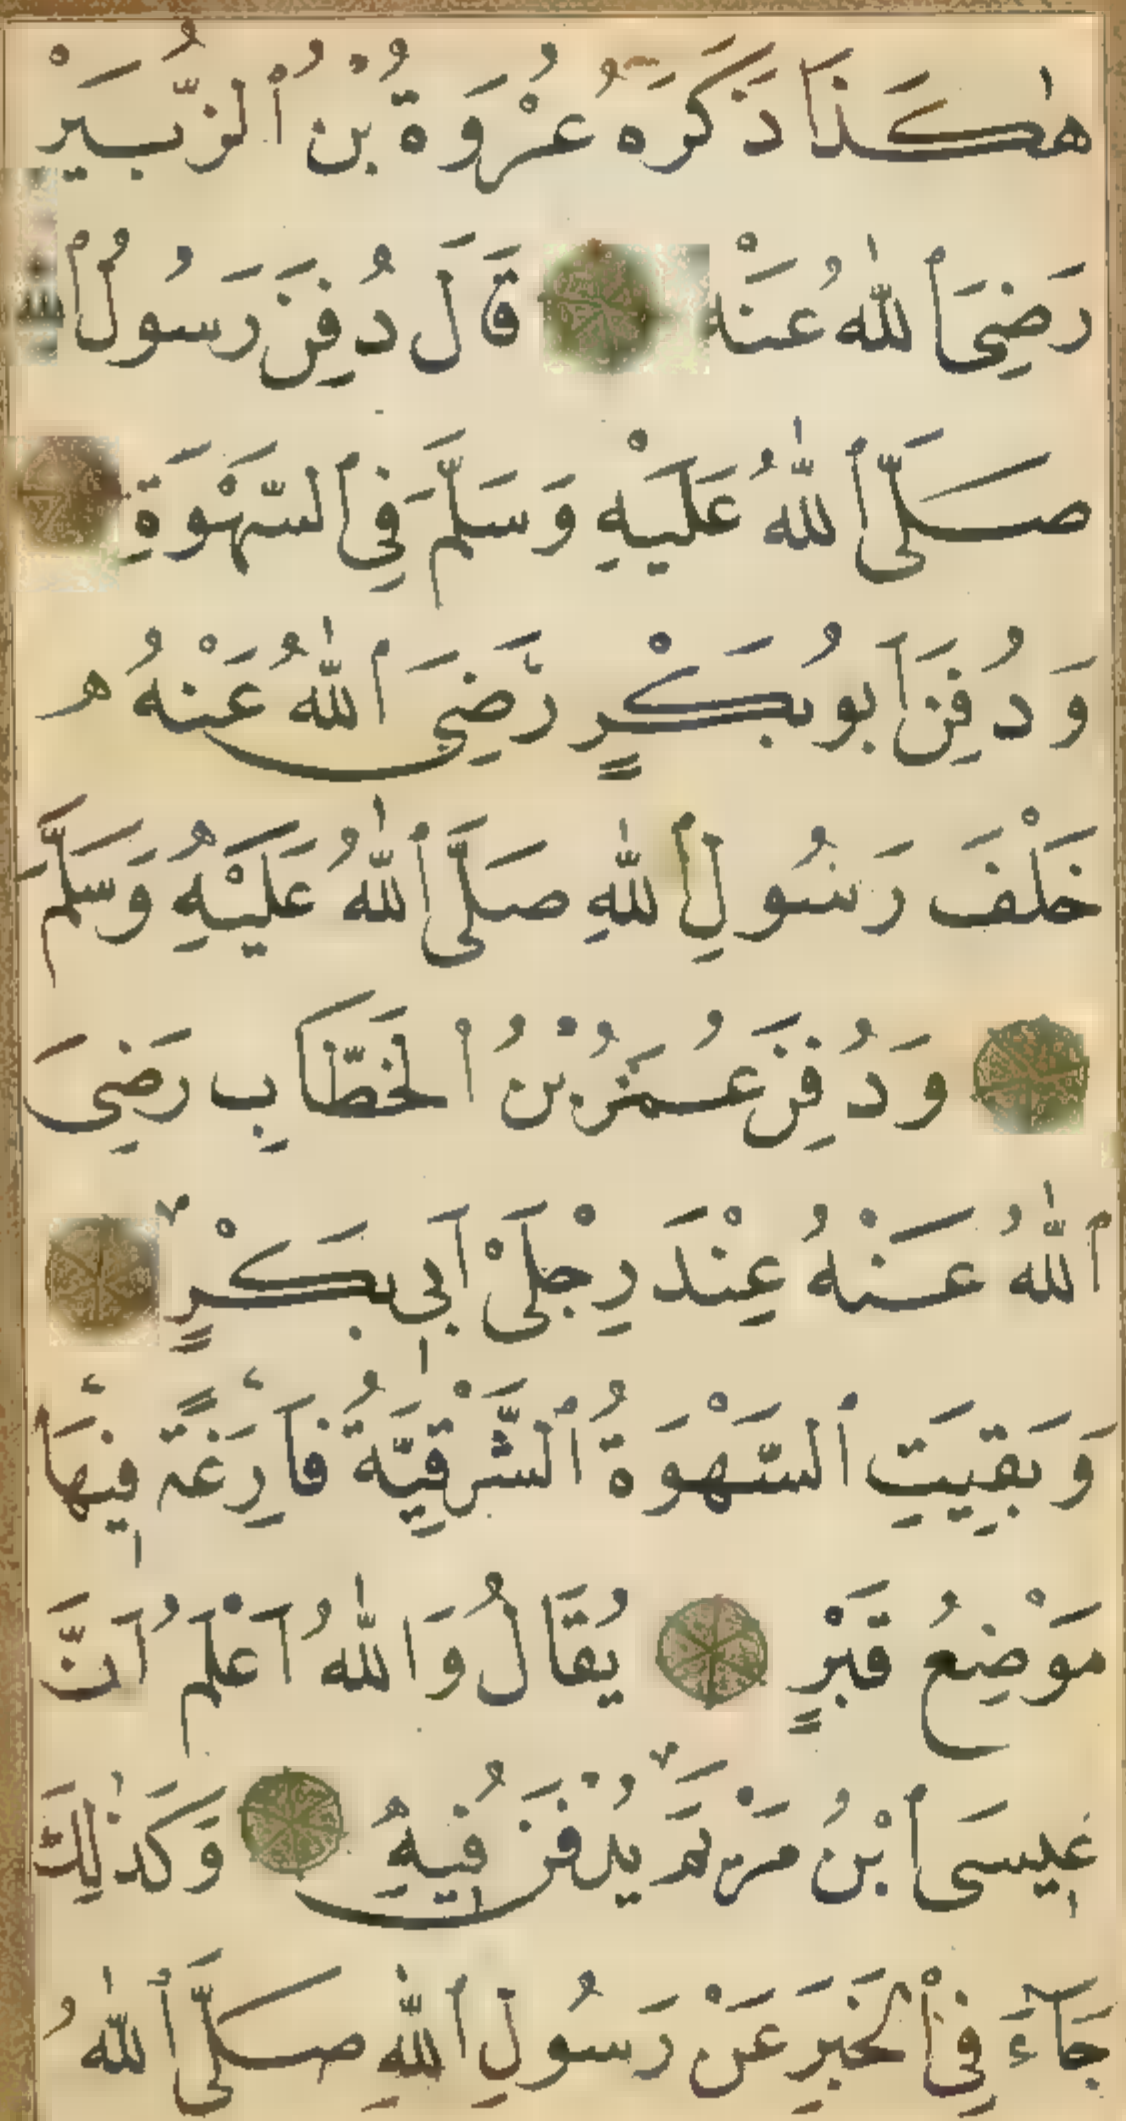 هٰكَذَا ذَكَرَهُ عُرْوَةُ بْنُ ٱلزُّبَيْرِ
رَضِيَ ٱللّٰهُ عَنْهُ قَالَ دُفِنَ رَسُولُ ٱللّٰهِ
صَلَّى ٱللّٰهُ عَلَيْهِ وَسَلَّمَ فِي ٱلسَّهْوَةِ
وَدُفِنَ أَبُو بَكْرٍ رَّضِيَ ٱللّٰهُ عَنْهُ
خَلْفَ رَسُولِ ٱللّٰهِ صَلَّى ٱللّٰهُ عَلَيْهِ وَسَلَّمَ
وَدُفِنَ عُمَرُ بْنُ ٱلْخَطَّابِ رَضِيَ
ٱللّٰهُ عَنْهُ عِنْدَ رِجْلَيْ أَبِي بَكْرٍ
وَبَقِيَتِ ٱلسَّهْوَةُ ٱلشَّرْقِيَّةُ فَارِغَةً فِيهَا
مَوْضِعُ قَبْرٍ يُقَالُ وَاللّٰهُ اَعْلَمُ اَنَّ
عِيسَى ٱبْنُ مَرْيَمَ يُدْفَنُ فِيهِ وَكَذٰلِكَ
جَآءَ فِي ٱلْخَبَرِ عَنْ رَسُولِ ٱللّٰهِ صَلَّى ٱللّٰهُ